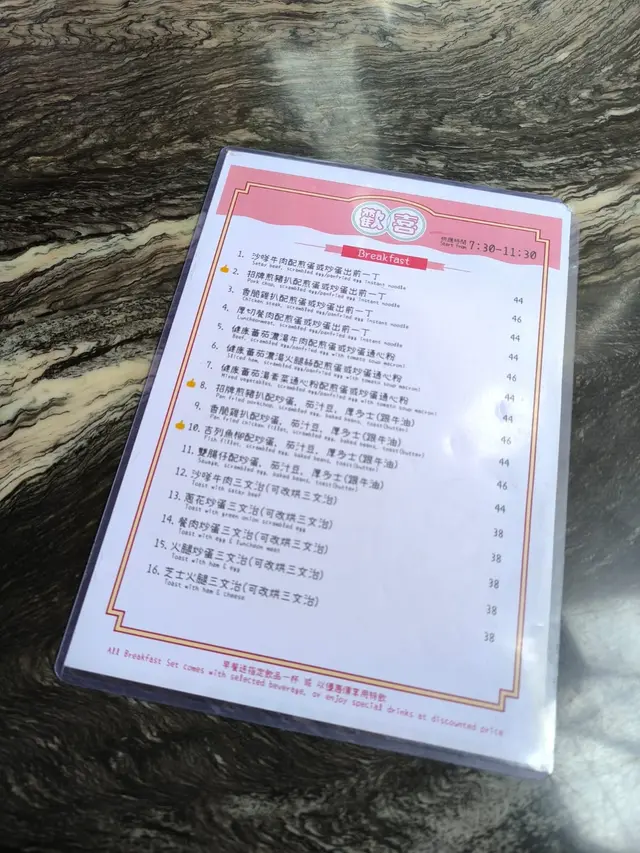 歡喜
供應時間 7:30-11:30
Start from
Breakfast
1. 沙嗲牛肉配煎蛋或炒蛋出前一丁 44
Satay beef, scrambled egg/panfried egg instant noodle
2. 招牌煎豬扒配煎蛋或炒蛋出前一丁 46
Pork chop, scrambled egg/panfried egg instant noodle
3. 香脆雞扒配煎蛋或炒蛋出前一丁 44
Chicken steak, scrambled egg/panfried egg instant noodle
4. 厚切餐肉配煎蛋或炒蛋出前一丁 44
Luncheonmeat, scrambled egg/panfried egg instant noodle
5. 健康蕃茄濃湯牛肉配煎蛋或炒蛋通心粉 46
Beef, scrambled egg/panfried egg with tomato soup macroni
6. 健康蕃茄濃湯火腿絲配煎蛋或炒蛋通心粉 44
Sliced ham, scrambled egg/panfried egg with tomato soup macroni
7. 健康蕃茄湯素菜通心粉配煎蛋或炒蛋 44
Mixed vegetables, scrambled egg/panfried egg with tomato soup macroni
8. 招牌煎豬扒配炒蛋, 茄汁豆, 厚多士(跟牛油) 46
Pan fried porkchop, scrambled egg, baked beans, toast(butter)
9. 香脆雞扒配炒蛋, 茄汁豆, 厚多士(跟牛油) 44
Pan fried chicken fillet, scrambled egg, baked beans, toast(butter)
10. 吉列魚柳配炒蛋, 茄汁豆, 厚多士(跟牛油) 46
Fish fillet, scrambled egg, baked beans, toast(butter)
11. 雙腸仔配炒蛋, 茄汁豆, 厚多士(跟牛油) 44
Sausage, scrambled egg, baked beans, toast(butter)
12. 沙嗲牛肉三文治(可改烘三文治) 38
Toast with satay beef
13. 蔥花炒蛋三文治(可改烘三文治) 38
Toast with green onion scrambled egg
14. 餐肉炒蛋三文治(可改烘三文治) 38
Toast with egg & luncheon meat
15. 火腿炒蛋三文治(可改烘三文治) 38
Toast with ham & egg
16. 芝士火腿三文治(可改烘三文治) 38
Toast with ham & cheese
早餐送指定飲品一杯 或 以優惠價享用特飲
All Breakfast Set comes with selected beverage, or enjoy special drinks at discounted price